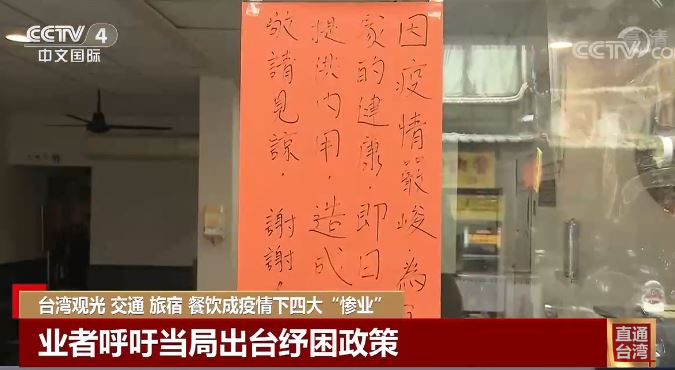 CCTV 4
中文国际
高清
CCTV.CO
因疫情嚴峻,為
家的健康,即日
提供內用,造成
敬請見諒,謝謝
台湾观光 交通 旅宿 餐饮成疫情下四大“惨业”
业者呼吁当局出台纾困政策
直通
台湾